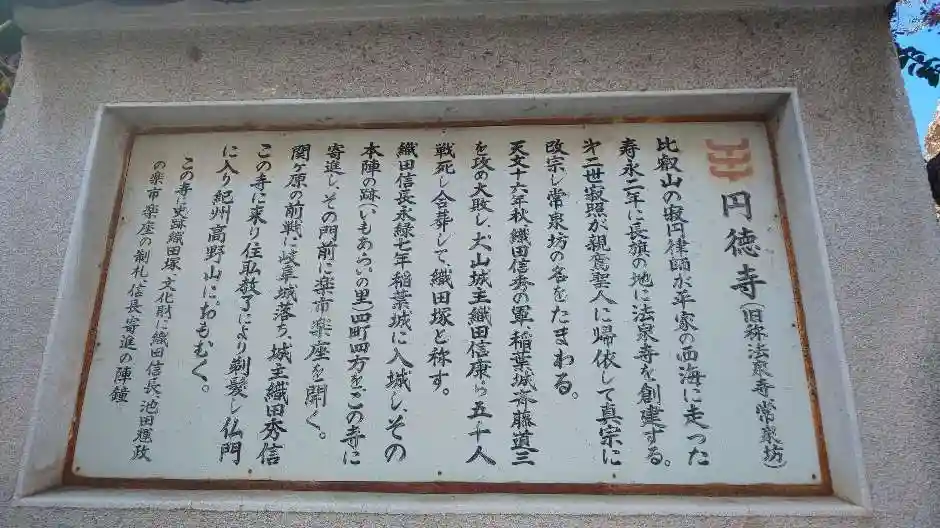 円徳寺(旧称法泉寺常泉坊)
比叡山の寂円律師が平家の西海に走った
寿永二年に長旗の地に法泉寺を創建する。
才二世寂照が親鸞聖人に帰依して真宗に
改宗し常泉坊の名をたまわる。
天文十六年秋織田信秀の軍、稲葉城斉藤道三
を攻め大敗し、犬山城主織田信康ら五十人
戦死し合葬して、織田塚と称す。
織田信長永緑七年稲葉城に入城し、その
本陣の跡(いもあらい)の里四町四方をこの寺に
寄進し、その門前に楽市楽座を開く。
関ヶ原の前戦に岐阜城落ち、城主織田秀信
この寺に来り住私教了により剃髪し仏門
に入り紀州高野山におもむく。
この寺に史跡織田塚、文化財に織田信長、池田輝政
の楽市楽座の制札、信長寄進の陣鐘